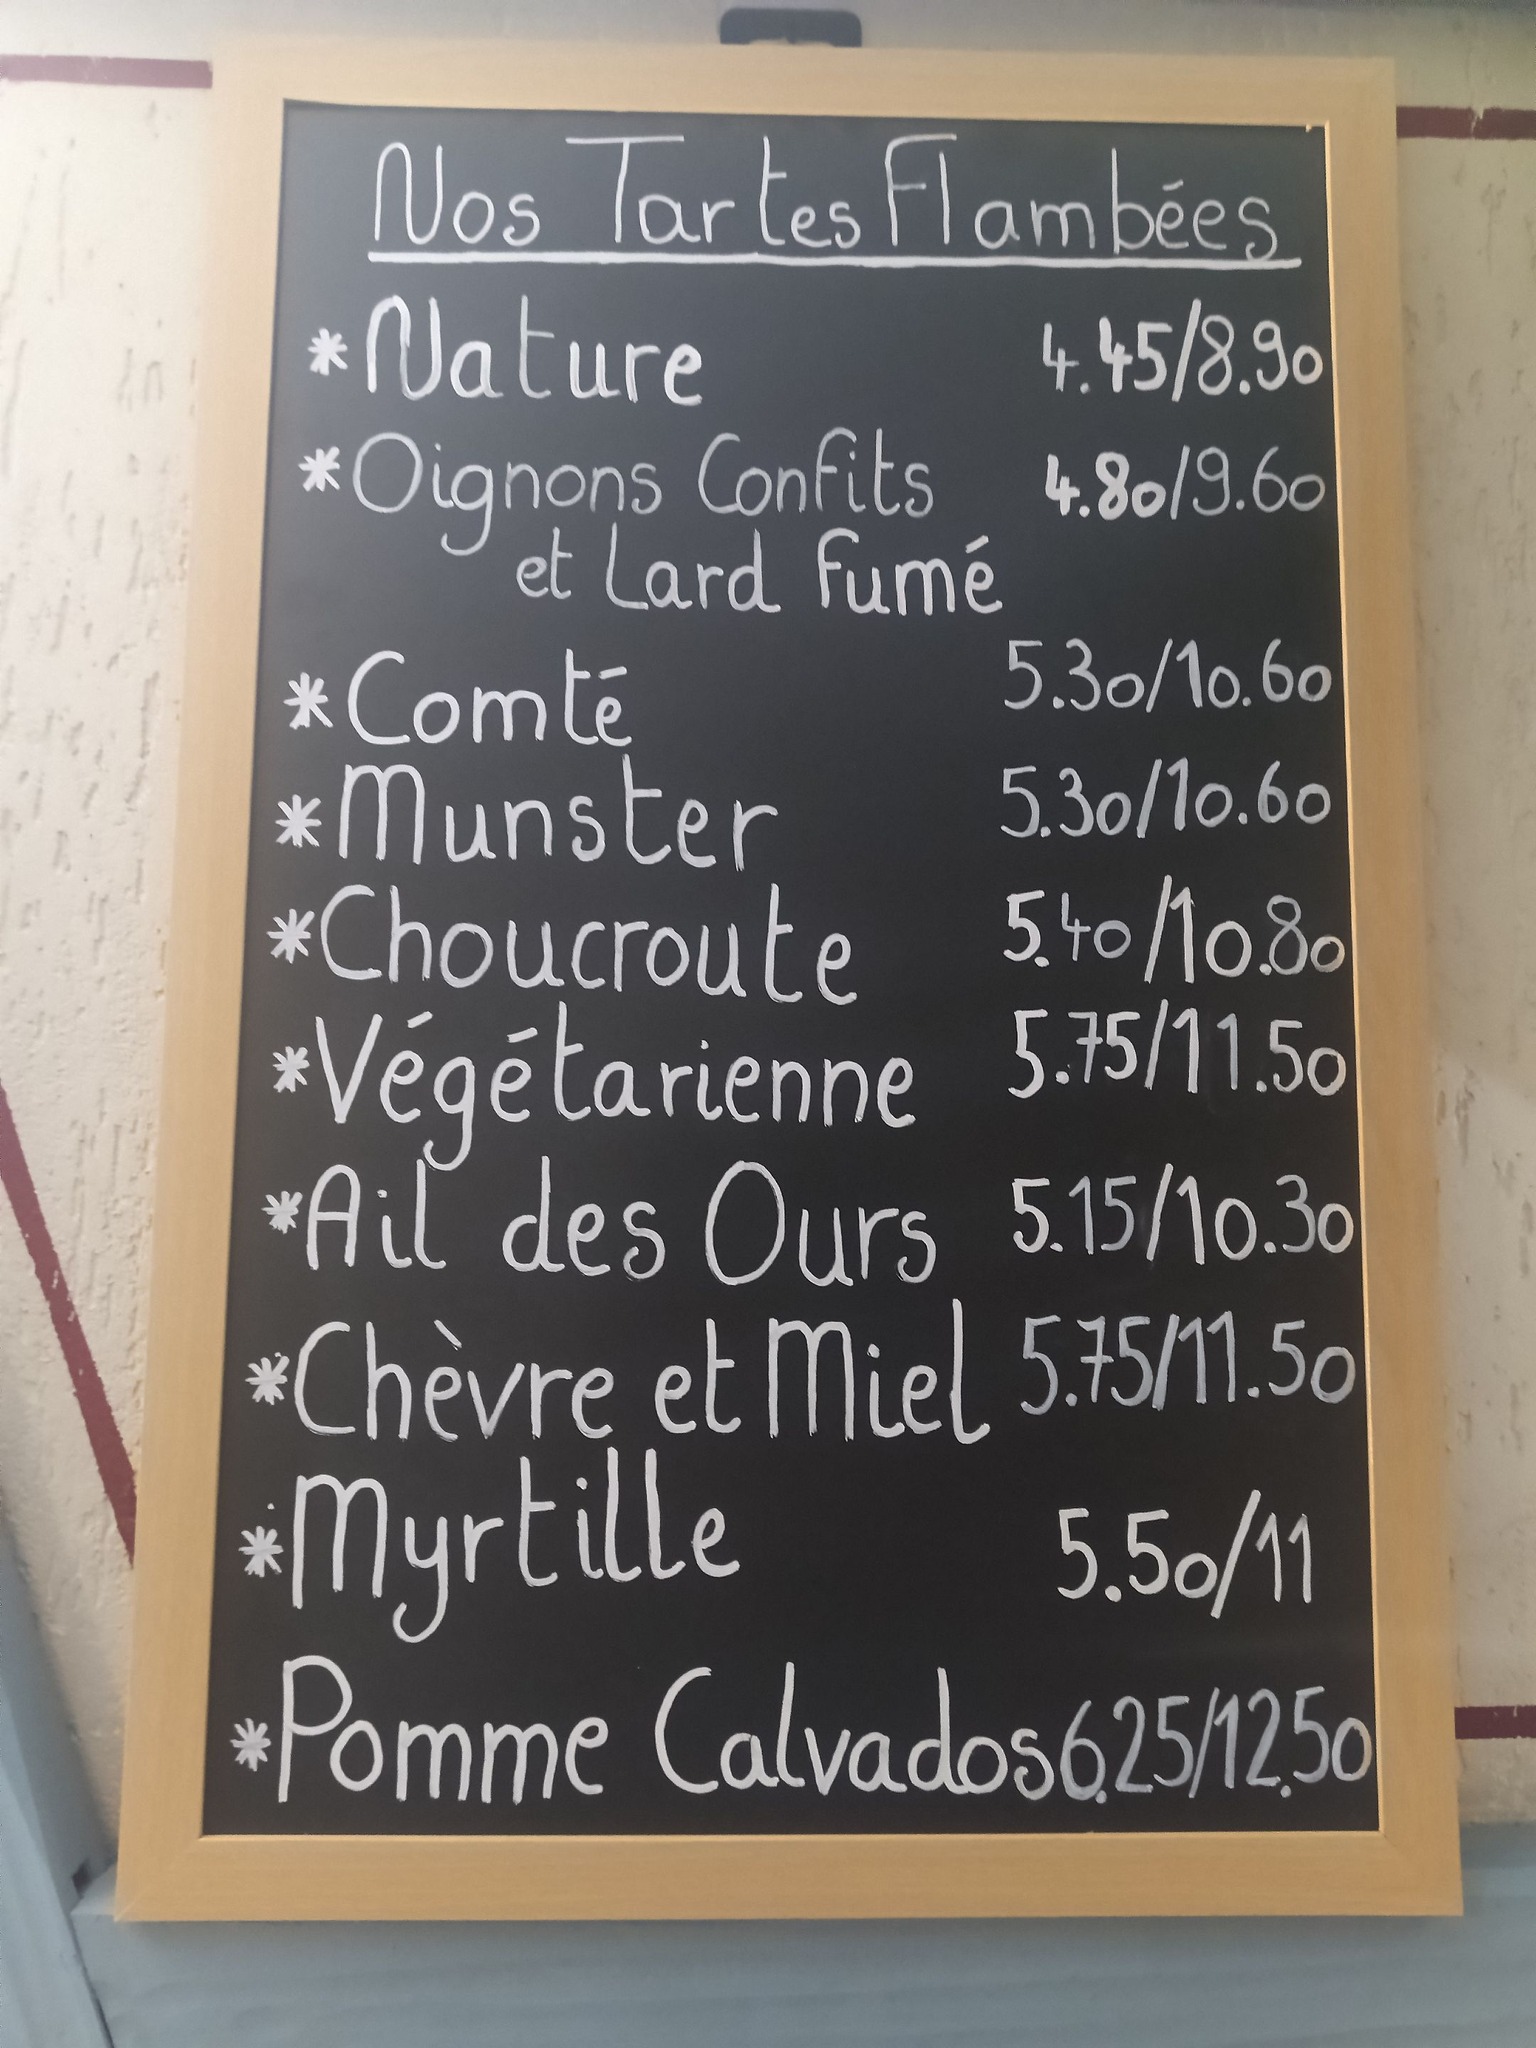 Nos Tartes Flambées
*Nature 4.45/8.90
*Oignons Confits 4.80/9.60
et Lard fumé
*Comté 5.30/10.60
*Munster 5.30/10.60
*Choucroute 5.40/10.80
*Végétarienne 5.75/11.50
*Ail des Ours 5.15/10.30
*Chèvre et Miel 5.75/11.50
*Myrtille 5.50/11
*Pomme Calvados 6.25/12.50